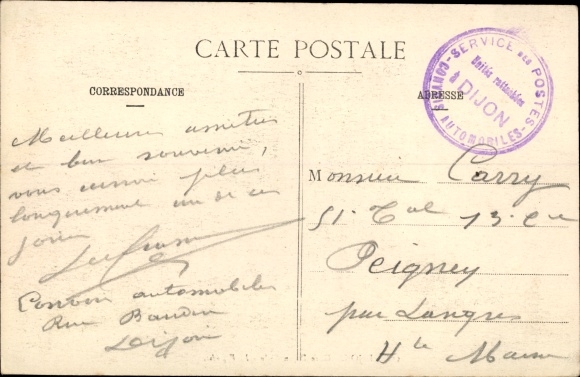 CARTE POSTALE
CORRESPONDANCE
ADRESSE
CONVOIS AUTOMOBILES - SERVICE DES POSTES
Unités rattachées
à DIJON
Meilleures amitiés
et bon souvenir,
vous plus
longuement un de ces
jours
Convois automobiles
Rue Baudin
Dijon
Monsieur Carry
Peigney
par Langres
Hte Marne